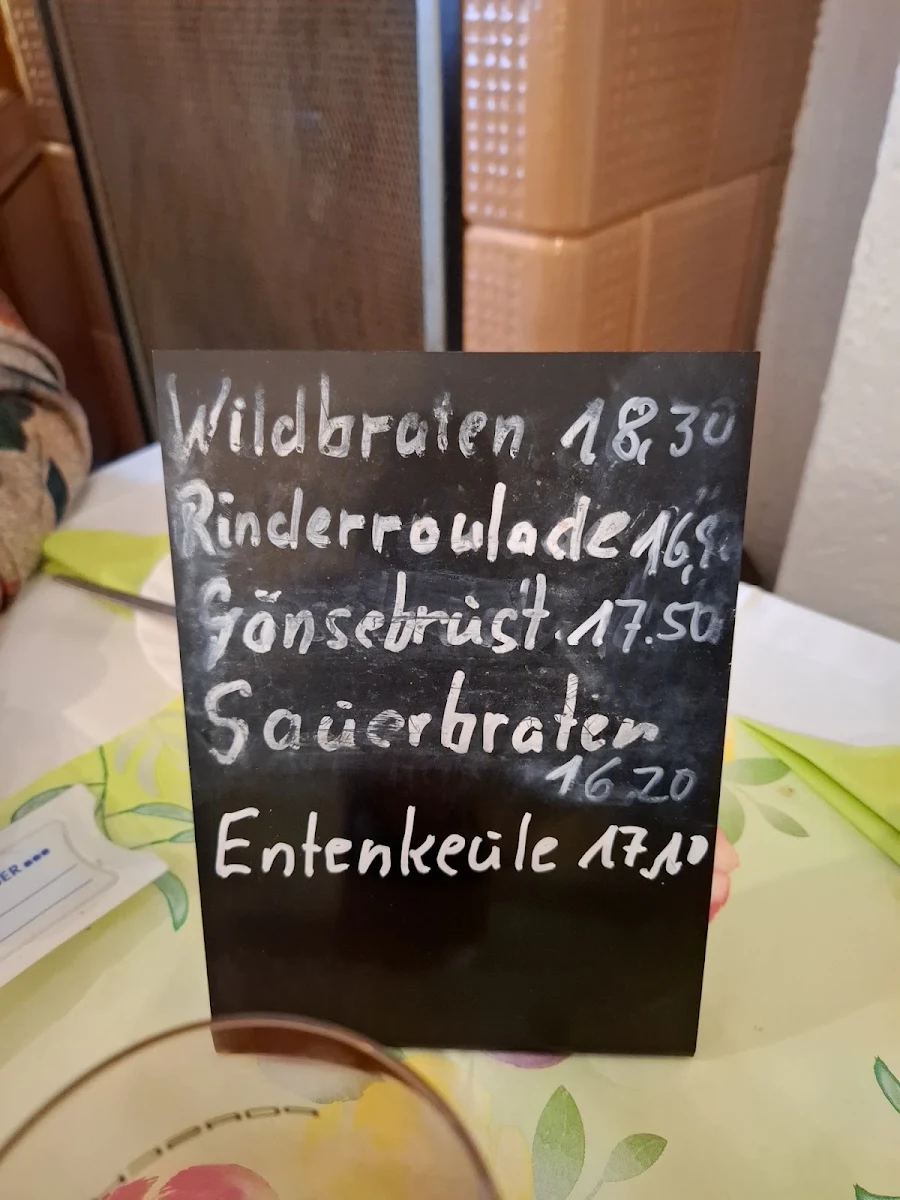 Wildbraten 18,30
Rinderroulade
Gänsebrust 17.50
Sauerbraten
16,20
Entenkeule 17,10